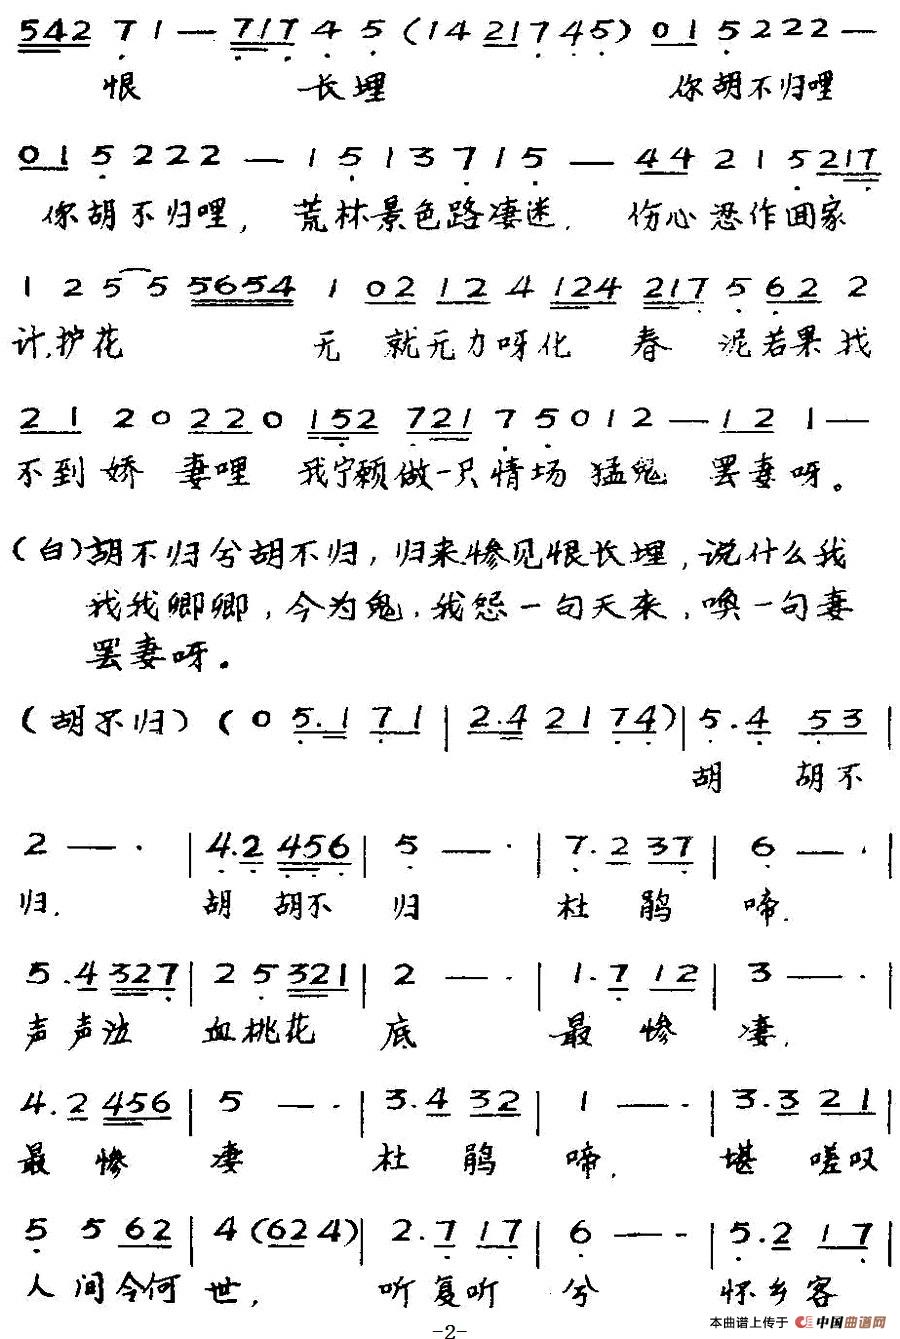 542 7 1 — 717 4 5 (14 217 45) 01 5 222 —
恨 长埋 你胡不归哩
01 5 222 — 1 5 1 3 7 1 5 — 44 2 1 5 217
你胡不归哩，荒林景色路凄迷．伤心恐作回家
1 2 5 5 5654 1 02 12 4 124 217 5 62 2
计，护花 无 就无力呀化 春 泥若果找
21 20 220 152 721 7 5 0 1 2 — 12 1 —
不到娇 妻哩 我宁愿做一只情场 猛鬼 罢妻呀。
（白）胡不归兮胡不归，归来惨见恨长埋，说什么我
我我卿卿，今为鬼．我怨一句天来，唤一句妻
罢妻呀。
（胡不归）（0 5.1 71 | 2.4 21 74）| 5.4 53 |
胡 胡不
2 — · | 4.2 456 | 5 — · | 7.2 37 | 6 — · |
归． 胡 胡不 归 杜 鹃 啼．
5.4 327 | 2 5 321 | 2 — · | 1.7 12 | 3 — · |
声声泣 血桃花 底 最 惨 凄．
4.2 456 | 5 — · | 3.4 32 | 1 — · | 3.3 21 |
最 惨 凄 杜 鹃 啼． 堪 嗟叹
5 5 62 | 4 (624) | 2.7 17 | 6 — · | 5.2 17 |
人间今何 世， 听复听 兮 怀乡客
-2-
本曲谱上传于 中国曲谱网